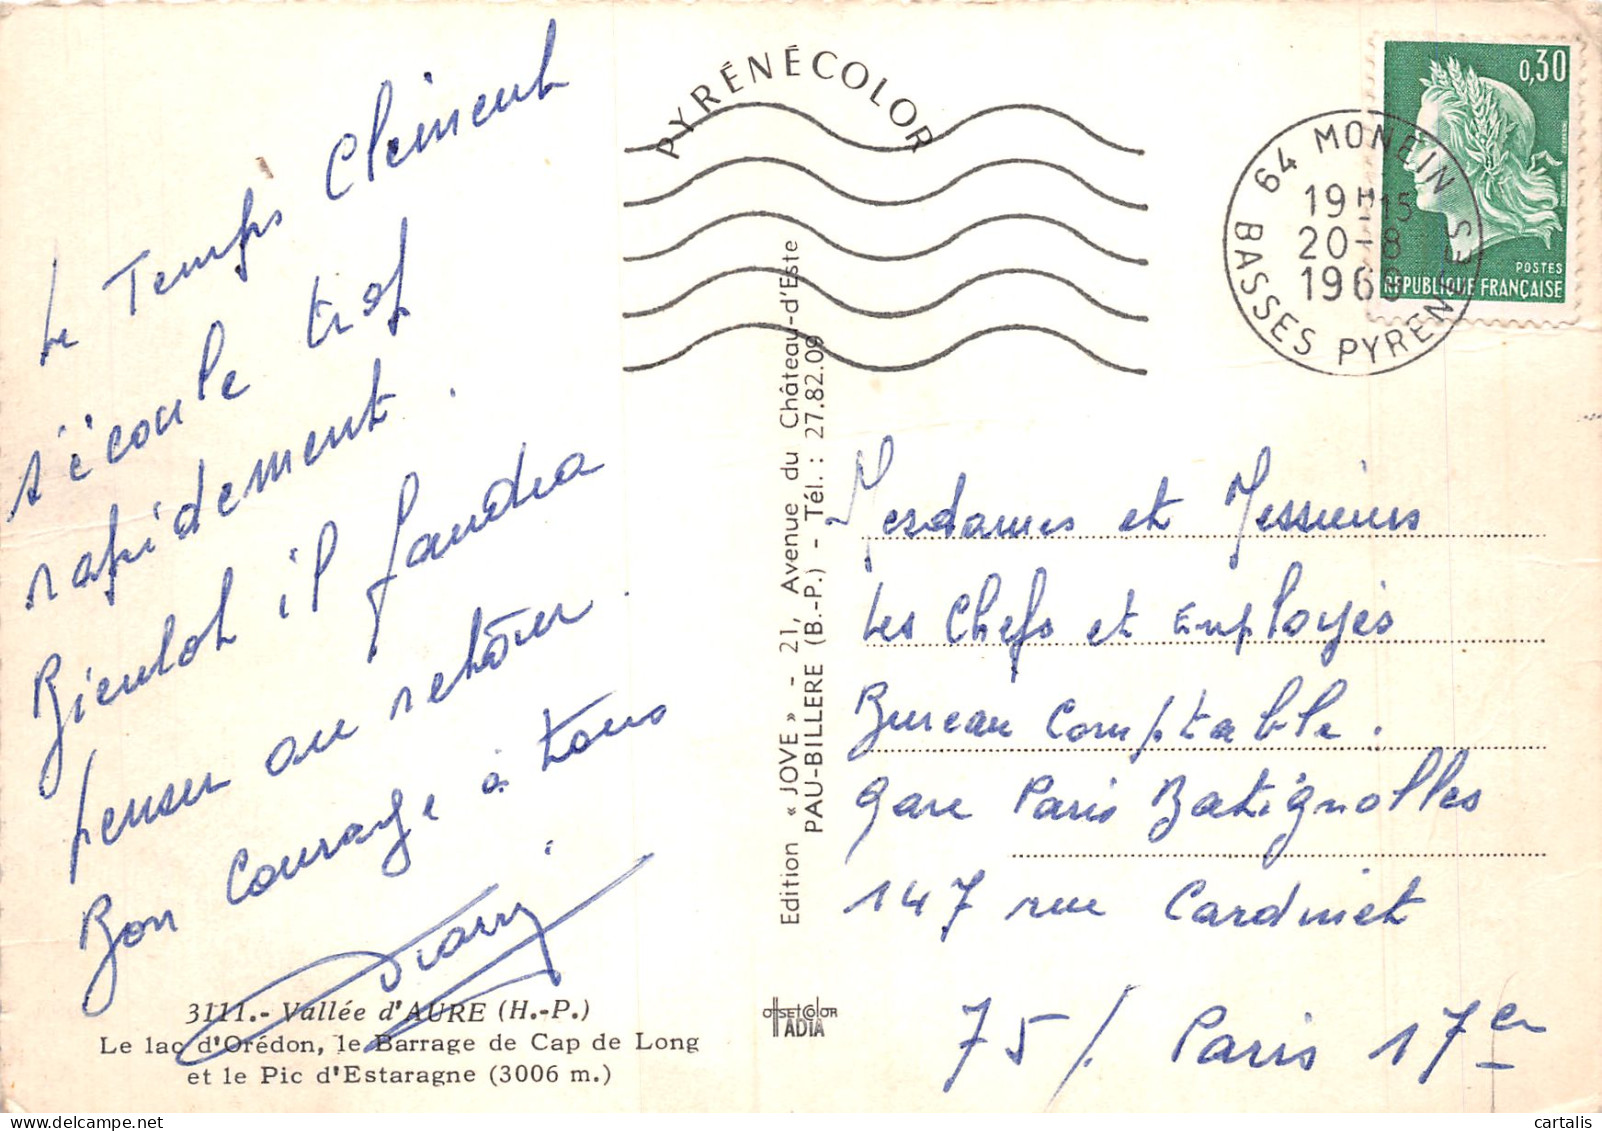 Le Temps Clément
s'écoule trop
rapidement.
Bientot il faudra
penser au retour.
Bon courage à tous
3111.- Vallée d'AURE (H.-P.)
Le lac d'Orédon, le Barrage de Cap de Long
et le Pic d'Estaragne (3006 m.)
PYRÉNÉCOLOR
Edition « JOVE » - 21, Avenue du Château-d'Este
PAU-BILLERE (B.-P.) - Tél. : 27.82.09
offsetcolor
IADIA
0,30
POSTES
RÉPUBLIQUE FRANÇAISE
64 MONEIN
19H15
20-8
1969
BASSES PYRENEES
Mesdames et Messieurs
Les Chefs et Employés
Bureau Comptable.
Gare Paris Batignolles
147 rue Cardinet
75/. Paris 17er
cartalis.com